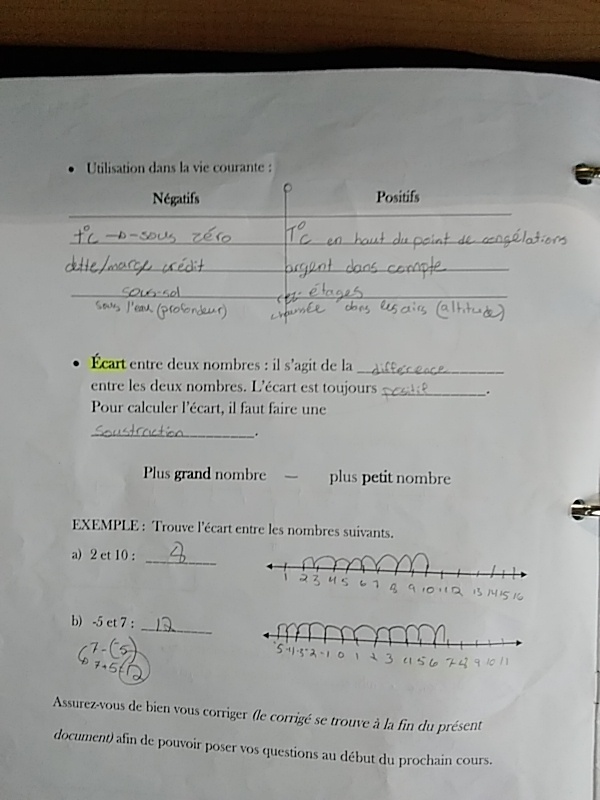 • Utilisation dans la vie courante :
Négatifs Positifs
T°C → sous zéro T°C en haut du point de congélations
dette/marge crédit argent dans compte
sous-sol rez- étages
sous l'eau (profondeur) chaussée dans les airs (altitude)
• Écart entre deux nombres : il s'agit de la différence
entre les deux nombres. L'écart est toujours positif.
Pour calculer l'écart, il faut faire une
soustraction.
Plus grand nombre — plus petit nombre
EXEMPLE : Trouve l'écart entre les nombres suivants.
a) 2 et 10 : 8
1 2 3 4 5 6 7 8 9 10 11 12 13 14 15 16
b) -5 et 7 : 12
-5 -4 -3 -2 -1 0 1 2 3 4 5 6 7 8 9 10 11
7-(-5)
7+5=12
Assurez-vous de bien vous corriger (le corrigé se trouve à la fin du présent
document) afin de pouvoir poser vos questions au début du prochain cours.